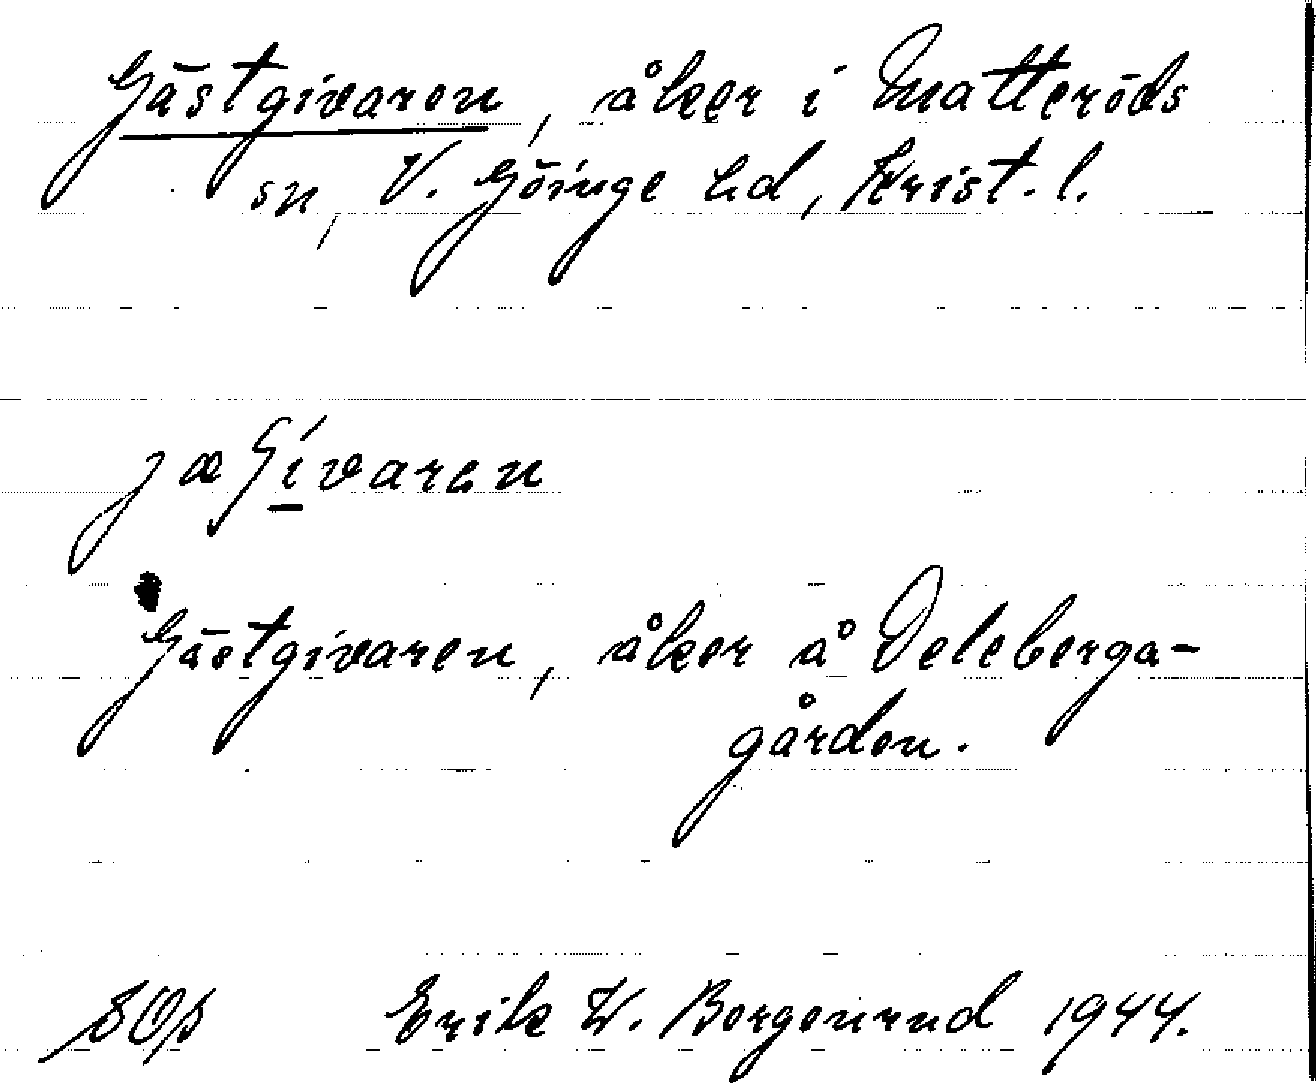 Gästgivaren, åker i Matteröds
sn, V. Göinge hd, Krist. l.
jæʃívaren
Gästgivaren, åker å Deleberga-
gården.
SOp Erik W. Borgenrud 1944.